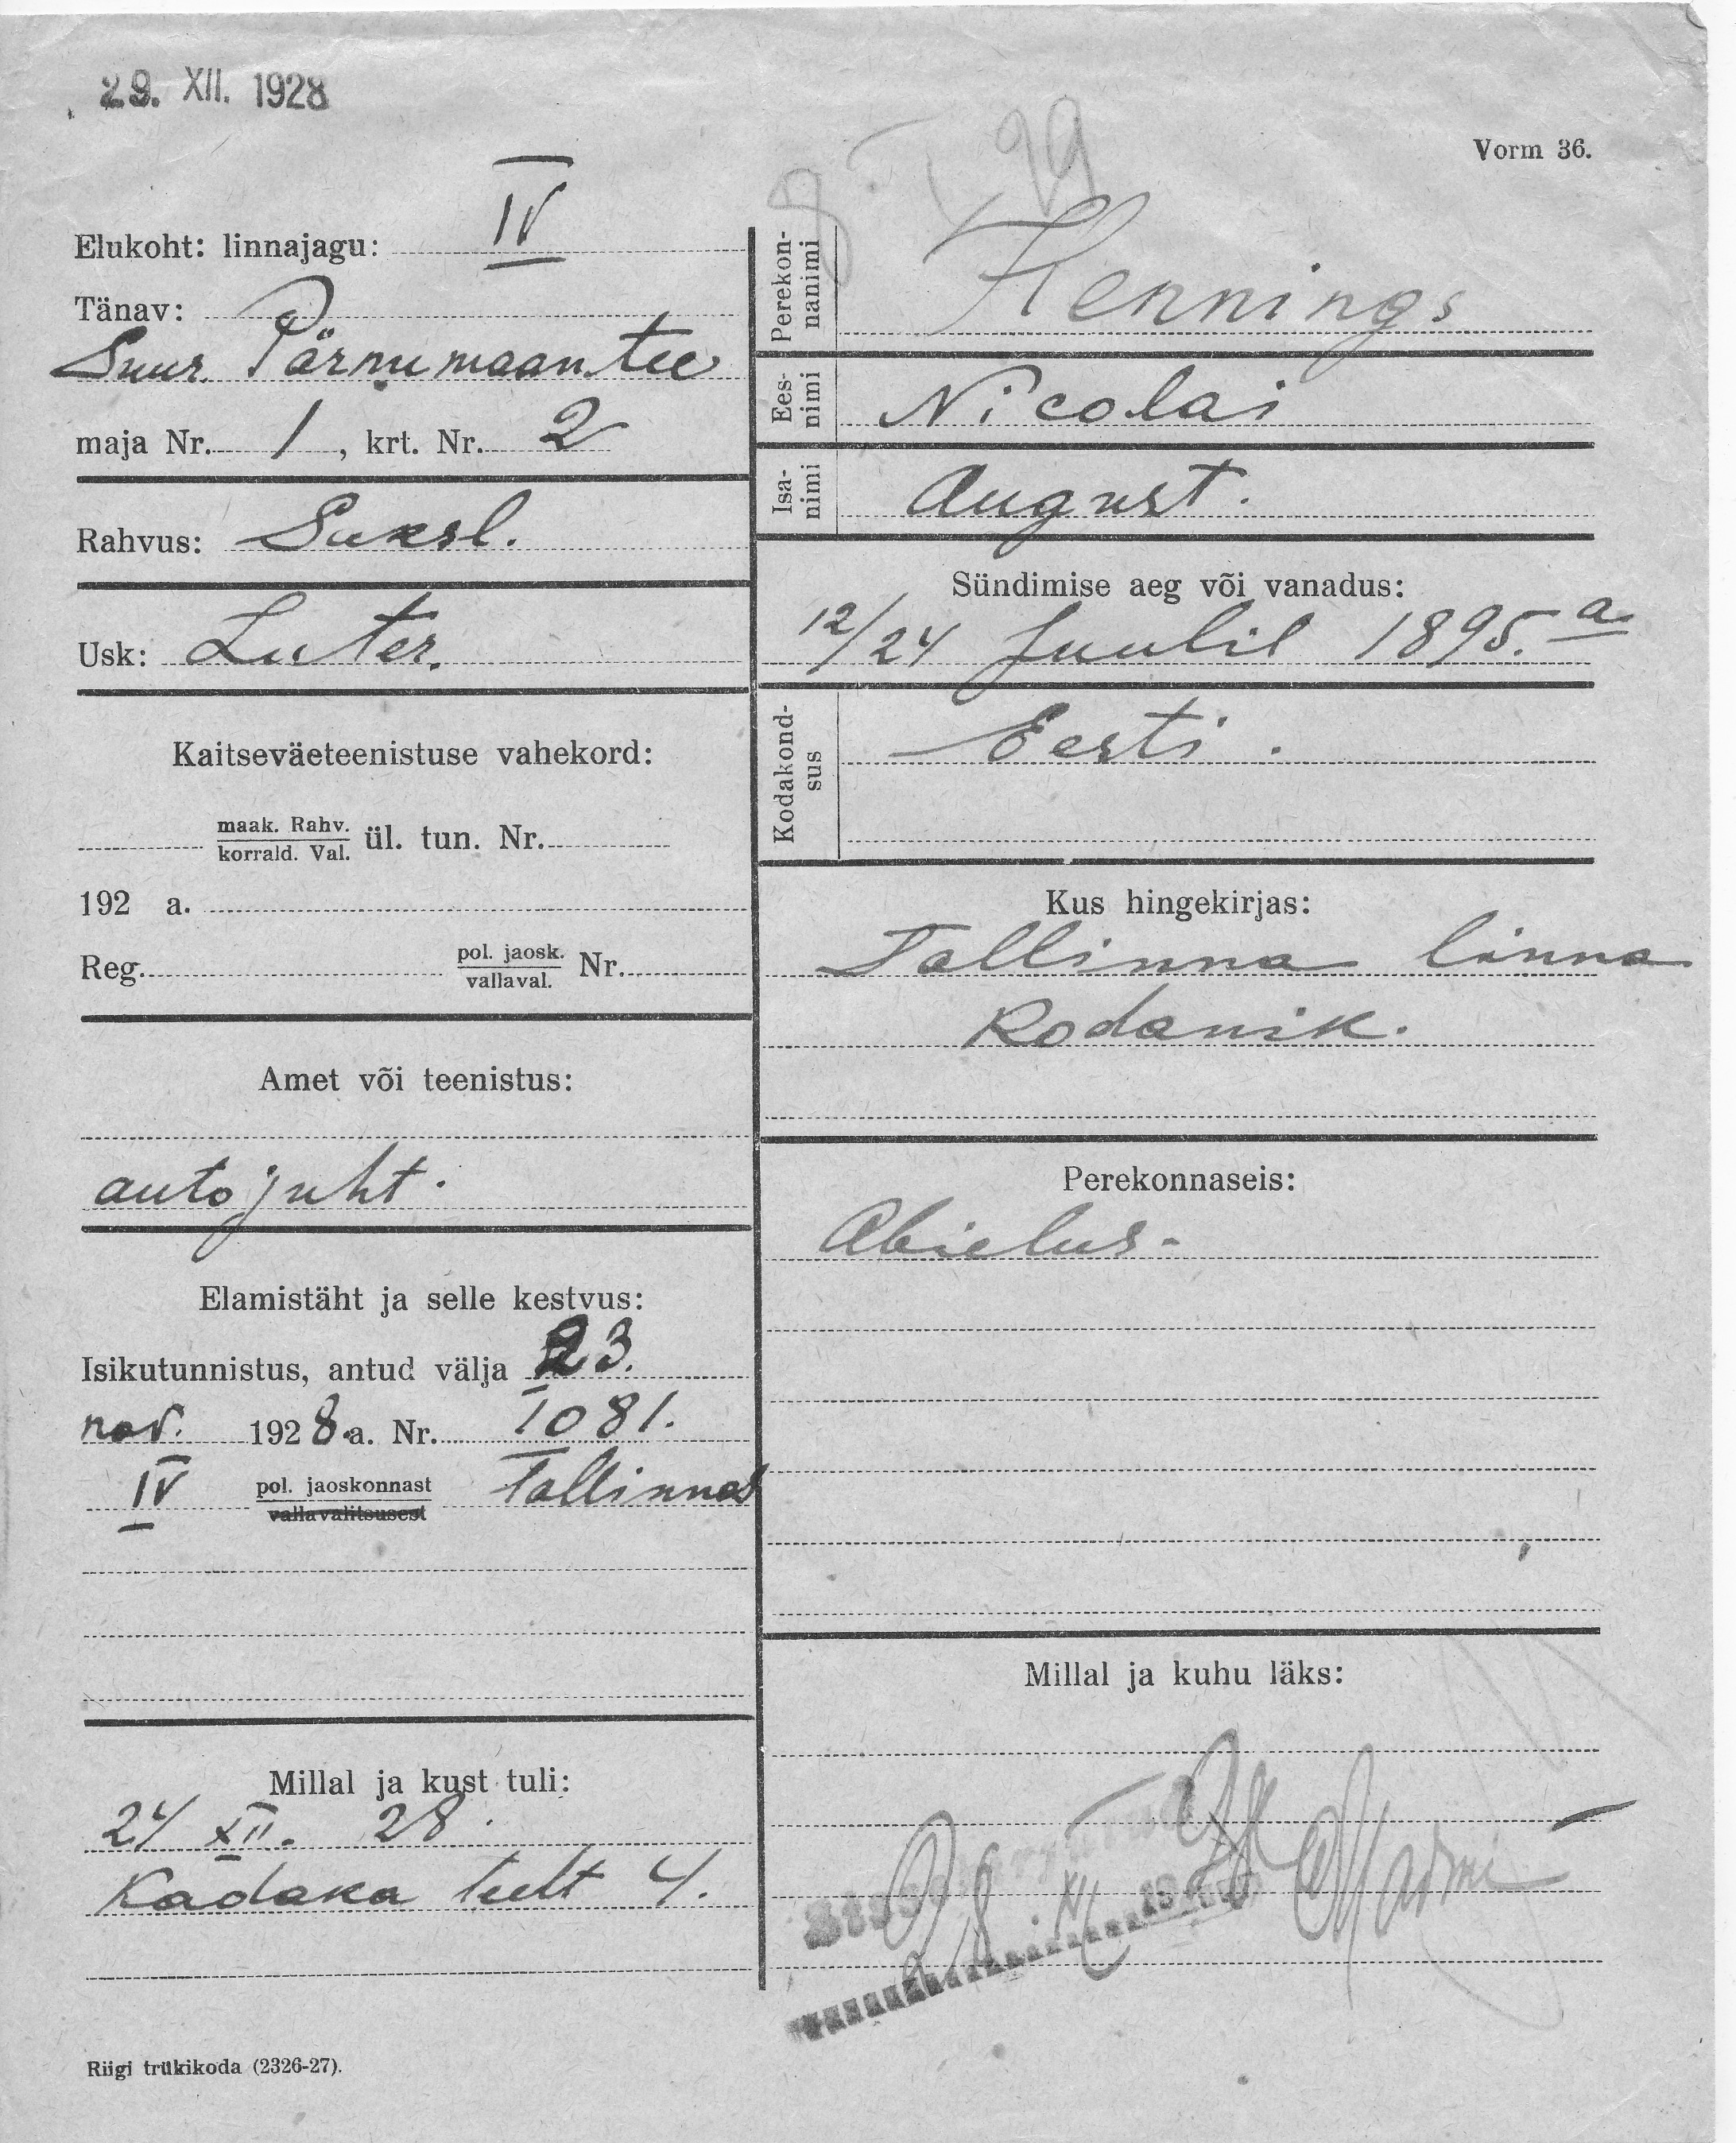 29. XII. 1928
Vorm 36.
Elukoht: linnajagu: IV
Tänav:
Suur. Pärnu maantee
maja Nr. 1, krt. Nr. 2
Rahvus: Saksl.
Usk: Luter.
Kaitseväeteenistuse vahekord:
maak. Rahv.
korrald. Val. ül. tun. Nr.
192 a.
Reg. pol. jaosk.
vallaval. Nr.
Amet või teenistus:
autojuht.
Elamistäht ja selle kestvus:
Isikutunnistus, antud välja 23.
nov. 1928.a. Nr. 1081.
IV pol. jaoskonnast Tallinnas
vallavalitsusest
Millal ja kust tuli:
24 XII. 28.
Kadaka teelt 4.
Riigi trükikoda (2326-27).
8. I 29
Perekon-
nanimi Hennings
Ees-
nimi Nicolai
Isa-
nimi August.
Sündimise aeg või vanadus:
12/24 Juulil 1895. a.
Kodakond-
sus Eesti.
Kus hingekirjas:
Tallinna linna
Kodanik.
Perekonnaseis:
Abielus.
Millal ja kuhu läks: